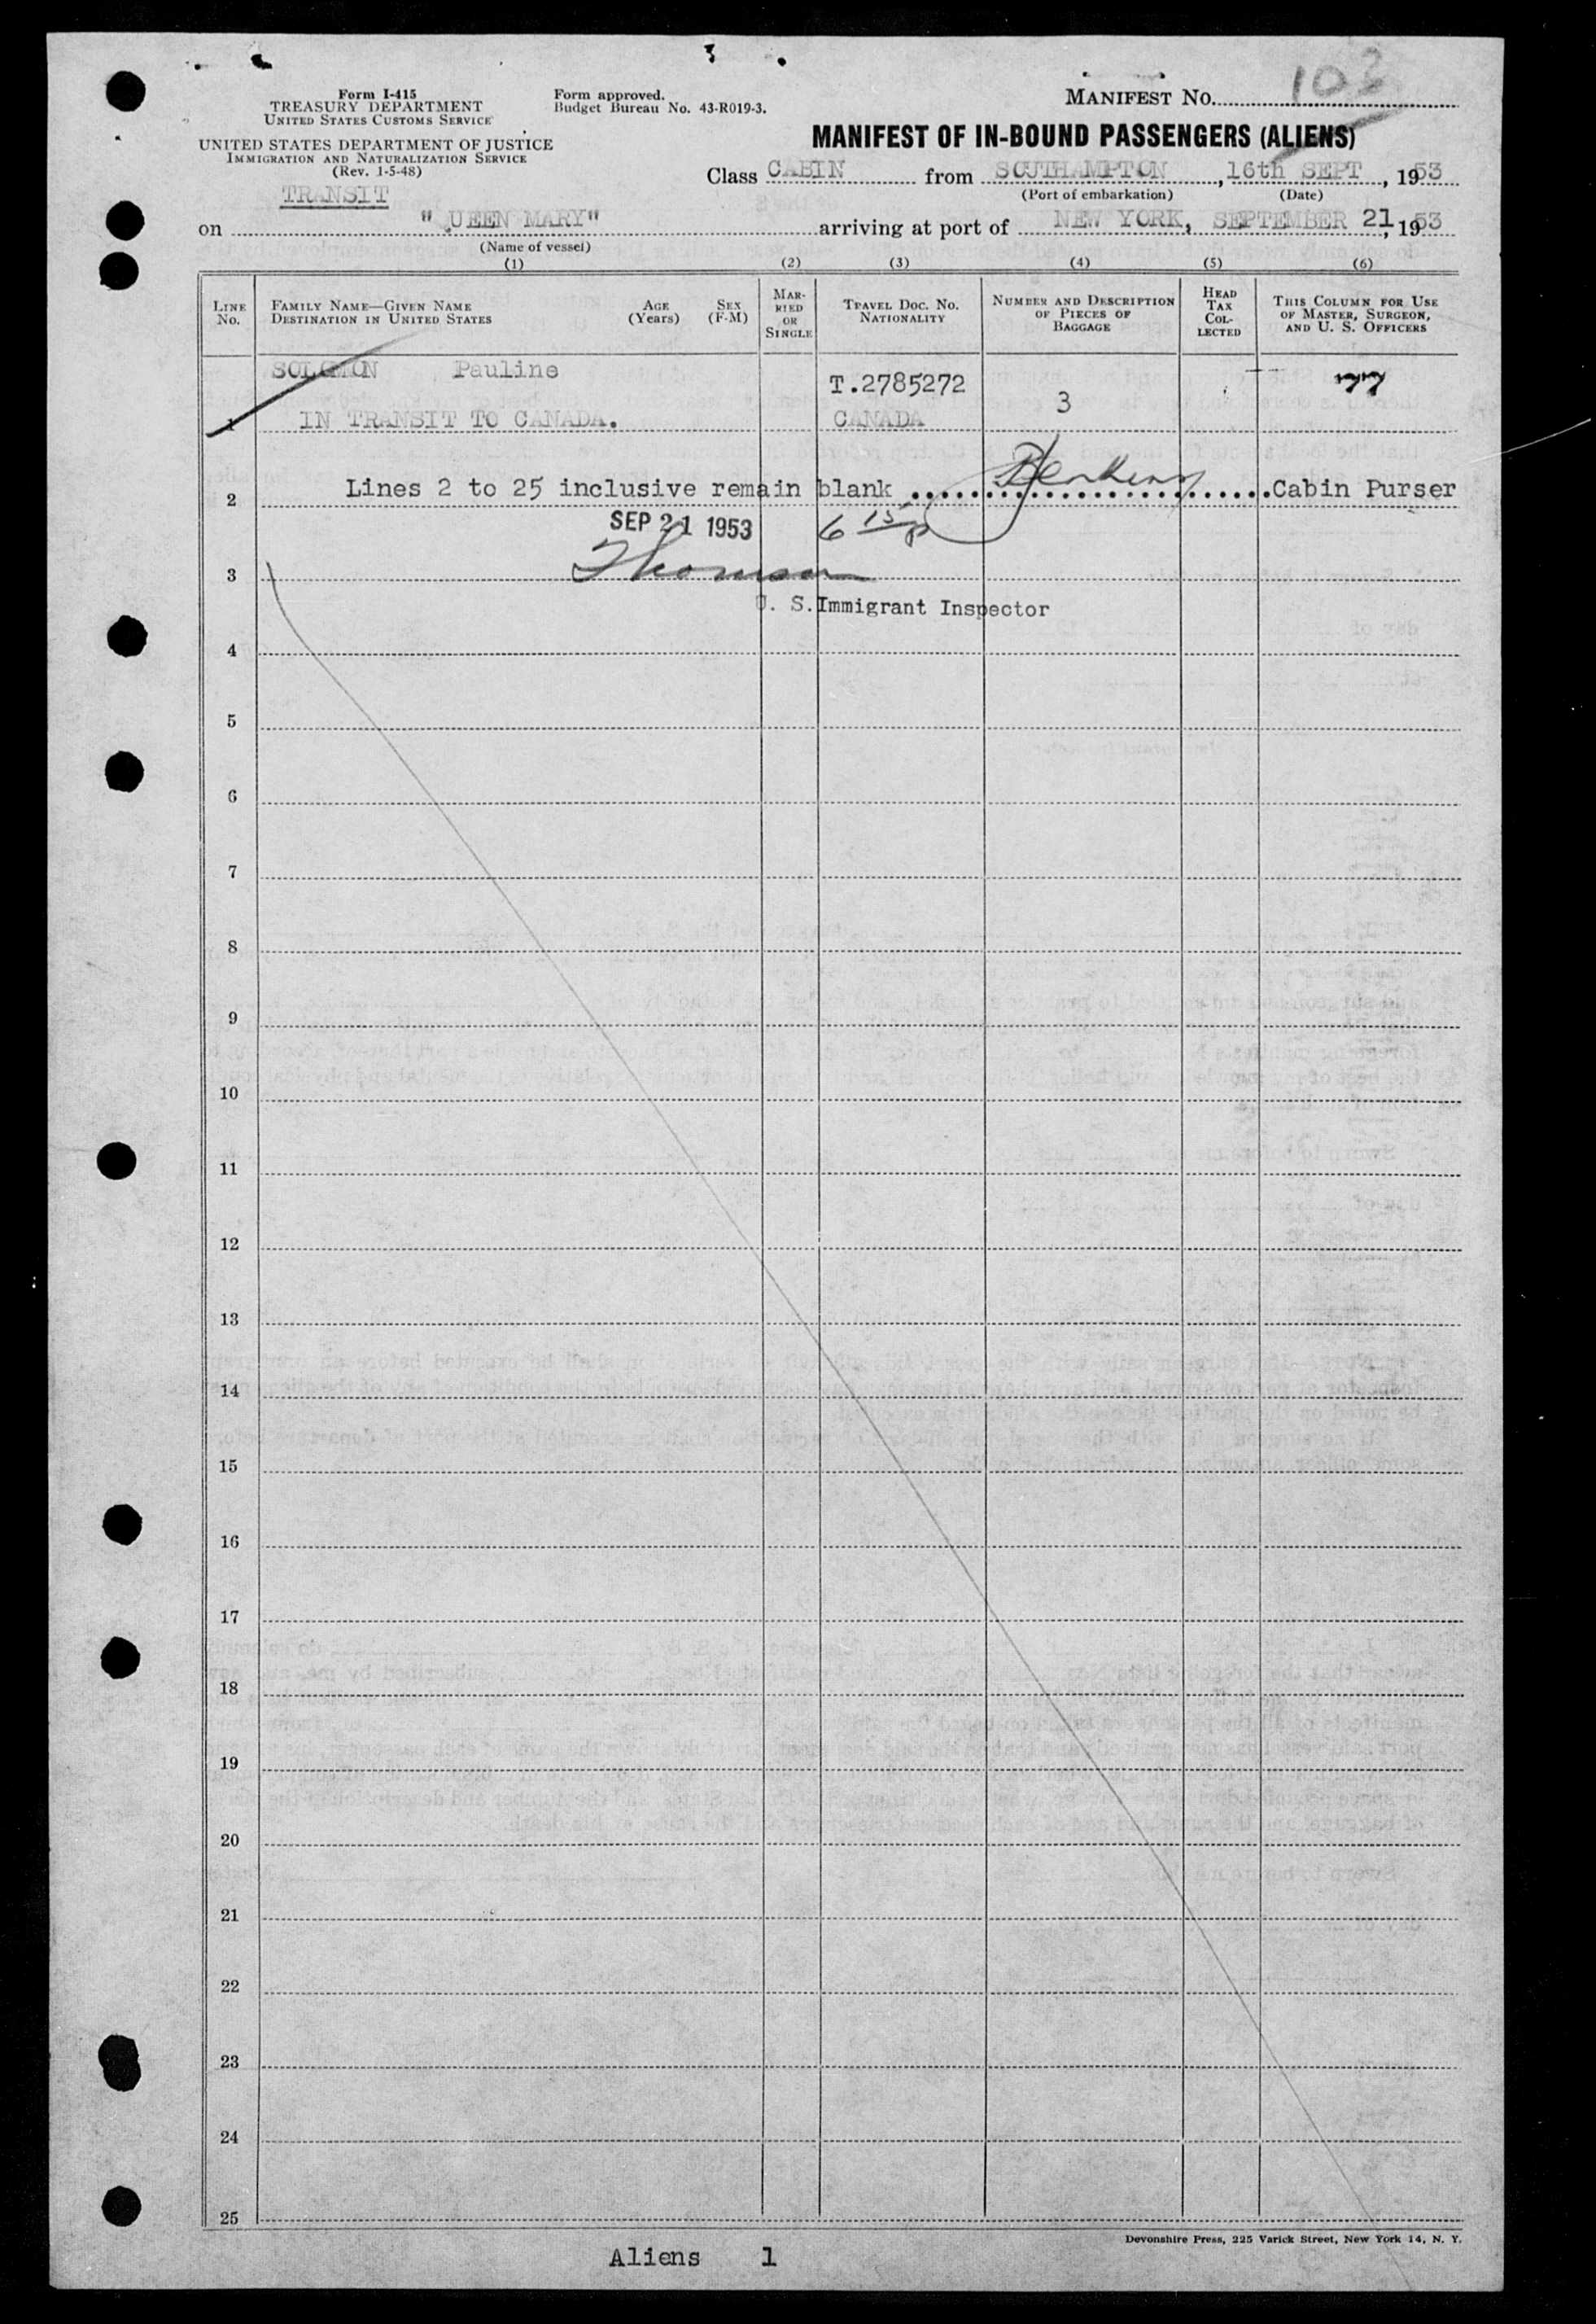 103
Form I-415
TREASURY DEPARTMENT
UNITED STATES CUSTOMS SERVICE
Form approved.
Budget Bureau No. 43-R019-3.
MANIFEST NO.
UNITED STATES DEPARTMENT OF JUSTICE
IMMIGRATION AND NATURALIZATION SERVICE
(Rev. 1-5-48)
MANIFEST OF IN-BOUND PASSENGERS (ALIENS)
TRANSIT
Class CABIN from SOUTHAMPTON, 16th SEPT, 1953
(Port of embarkation) (Date)
on " UEEN MARY" arriving at port of NEW YORK, SEPTEMBER 21, 1953
(Name of vessel)
(1) (2) (3) (4) (5) (6)
LINE No.
FAMILY NAME—GIVEN NAME
DESTINATION IN UNITED STATES
AGE (Years)
SEX (F-M)
MARRIED OR SINGLE
TRAVEL DOC. NO.
NATIONALITY
NUMBER AND DESCRIPTION OF PIECES OF BAGGAGE
HEAD TAX COLLECTED
THIS COLUMN FOR USE OF MASTER, SURGEON, AND U. S. OFFICERS
SOLOMON Pauline T.2785272 3
1 IN TRANSIT TO CANADA. CANADA
2 Lines 2 to 25 inclusive remain blank Cabin Purser
SEP 21 1953 6 15 p
3 Thomson
U. S. Immigrant Inspector
4
5
6
7
8
9
10
11
12
13
14
15
16
17
18
19
20
21
22
23
24
25
Devonshire Press, 225 Varick Street, New York 14, N. Y.
Aliens 1